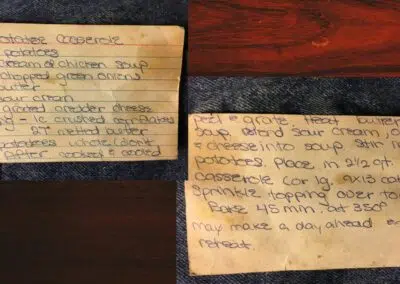 potatoe casserole
potatoes
cream of chicken soup
chopped green onions
butter
sour cream
grated cheddar cheese
- 1c crushed corn flakes
2T melted butter
potatoes whole (don't
After cooked & cooled
peel & grate. Heat butter
soup. Blend sour cream, o
& cheese into soup. Stir in
potatoes. Place in 2 1/2 qt.
casserole (or lg. 9x13 ca
Sprinkle topping over to
Bake 45 min. at 350°
may make a day ahead &
reheat.